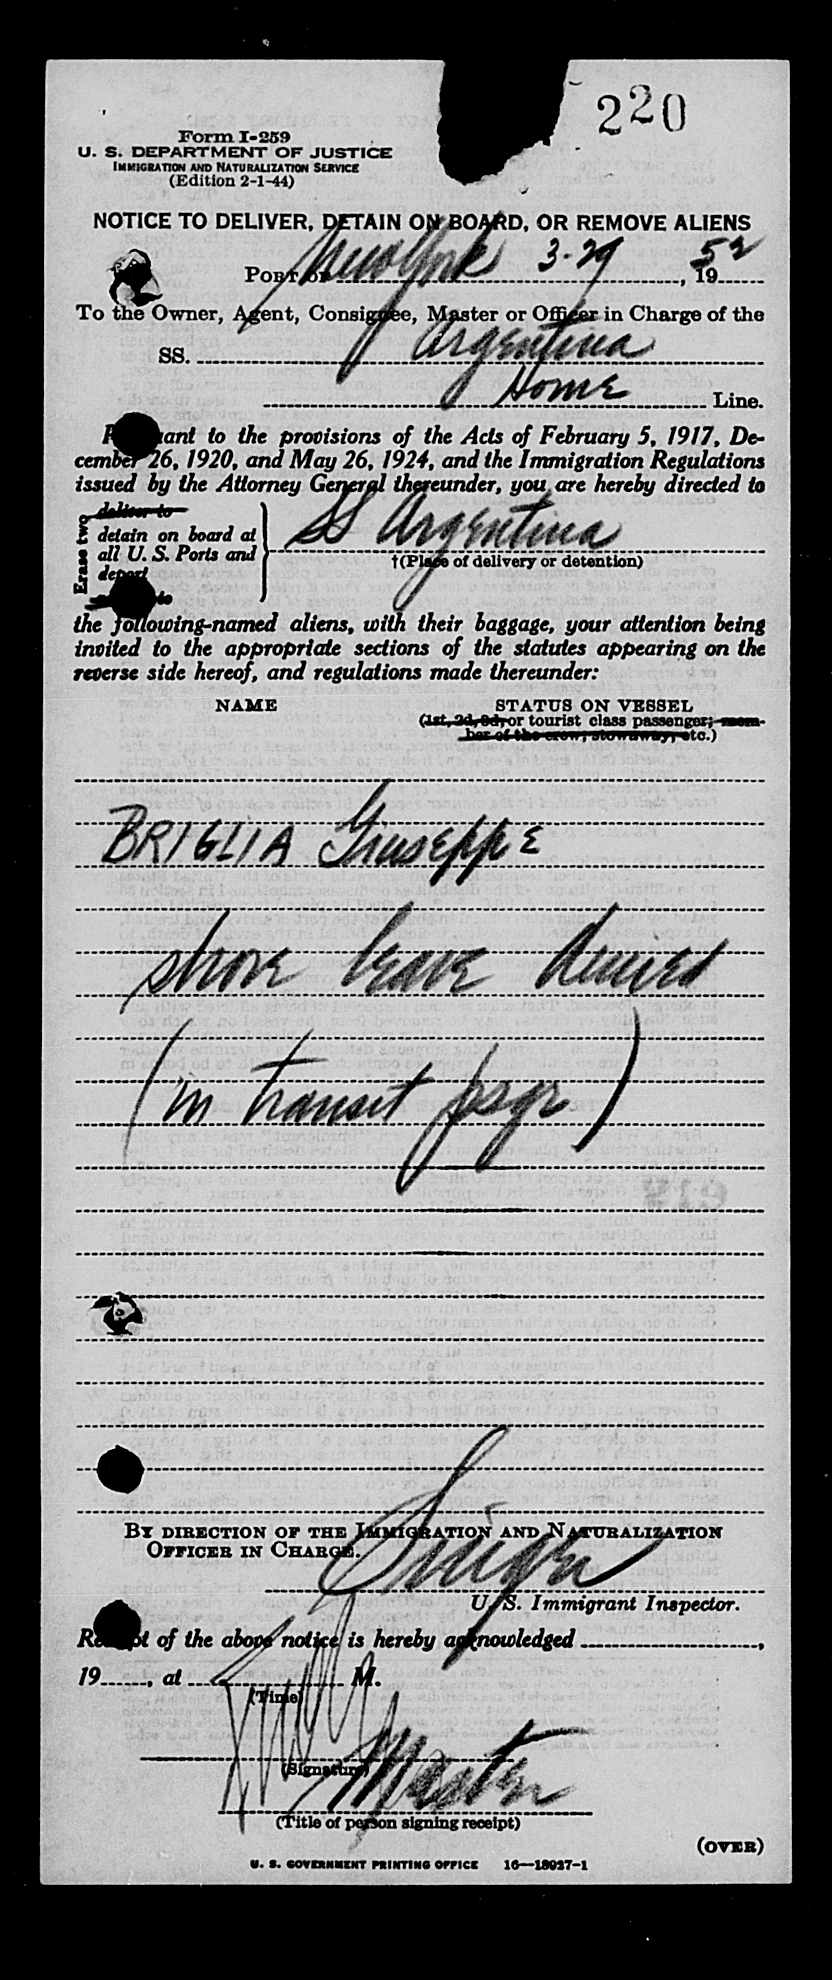 220
Form I-259
U. S. DEPARTMENT OF JUSTICE
IMMIGRATION AND NATURALIZATION SERVICE
(Edition 2-1-44)
NOTICE TO DELIVER, DETAIN ON BOARD, OR REMOVE ALIENS
PORT OF New York 3-29, 1952
To the Owner, Agent, Consignee, Master or Officer in Charge of the
SS. Argentina
Home Line.
Pursuant to the provisions of the Acts of February 5, 1917, De-
cember 26, 1920, and May 26, 1924, and the Immigration Regulations
issued by the Attorney General thereunder, you are hereby directed to
Erase two
deliver to
detain on board at
all U. S. Ports and
deport
to
SS Argentina
†(Place of delivery or detention)
the following-named aliens, with their baggage, your attention being
invited to the appropriate sections of the statutes appearing on the
reverse side hereof, and regulations made thereunder:
NAME STATUS ON VESSEL
(1st, 2d, 3d, or tourist class passenger; mem-
ber of the crew; stowaway, etc.)
BRIGLIA Giuseppe
shore leave denied
(in transit psgr)
BY DIRECTION OF THE IMMIGRATION AND NATURALIZATION
OFFICER IN CHARGE.
U. S. Immigrant Inspector.
Receipt of the above notice is hereby acknowledged ,
19 , at M.
(Time)
(Signature)
Master
(Title of person signing receipt)
(OVER)
U. S. GOVERNMENT PRINTING OFFICE 16—18927-1